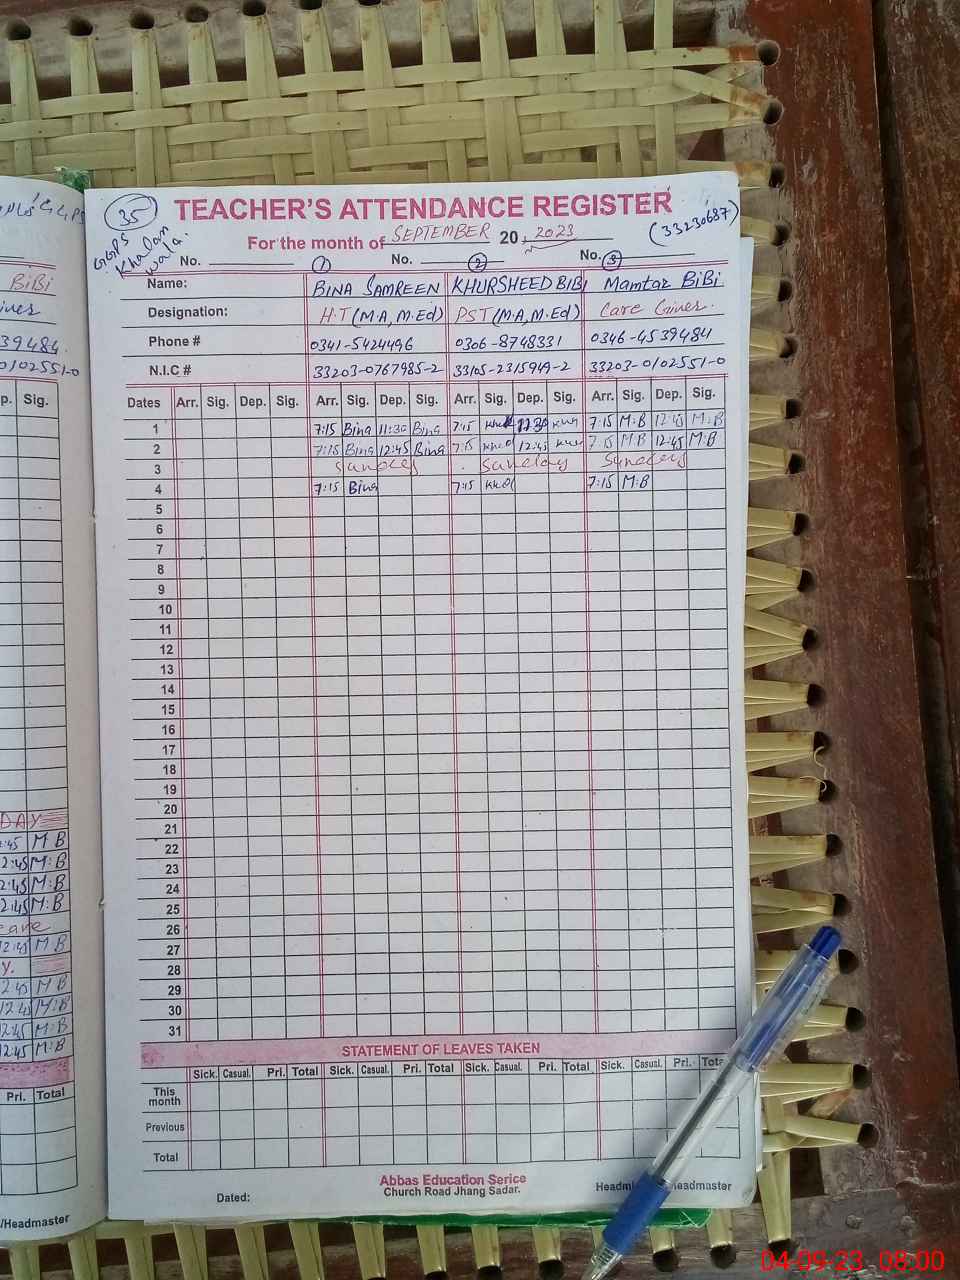 35 TEACHER'S ATTENDANCE REGISTER
GGPS Khalan wala.
For the month of SEPTEMBER 20 2023 (33230687)
No. 1 No. 2 No. 3
Name: BINA SAMREEN KHURSHEED BIBI Mamtaz BiBi
Designation: H.T (M.A, M.Ed) PST (M.A, M.Ed) Care Giver.
Phone # 0341-5424496 0306-8748331 0346-4539484
N.I.C # 33203-0767985-2 33203-0102551-0
Dates Arr. Sig. Dep. Sig. Arr. Sig. Dep. Sig. Arr. Sig. Dep. Sig. Arr. Sig. Dep. Sig.
1 7:15 Bina 11:30 Bina 7:15 11:30 7:15 M:B 12:45 M:B
2 7:15 Bina 12:45 Bina 7:15 12:45 7:15 M:B 12:45 M:B
3 Sunday Sunday Sunday
4 7:15 Bina 7:15 7:15 M:B
5
6
7
8
9
10
11
12
13
14
15
16
17
18
19
20
21
22
23
24
25
26
27
28
29
30
31
STATEMENT OF LEAVES TAKEN
Sick. Casual. Pri. Total Sick. Casual. Pri. Total Sick. Casual. Pri. Total Sick. Casual. Pri. Total
This month
Previous
Total
Abbas Education Serice
Church Road Jhang Sadar.
Dated:
Headmi headmaster
BiBi
39484
0102551-0
p. Sig.
DAY
:45 M B
2:45 M:B
2:45 M:B
2:45 M:B
12:45 M B
Y.
2:45 M B
12:45 M:B
12:45 M:B
12:45 M:B
Pri. Total
/Headmaster
04-09-23 08:00